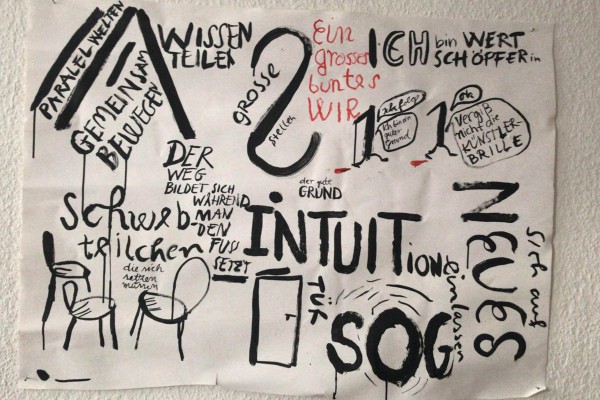 PARALEL WELTEN
GEMEINSAM
BEWEGEN
WISSEN
TEILEN
GROSSE
stellen
Ein
grosses
buntes
WIR
ICH bin WERT
SCHÖPFERin
Ich folge
Ich bin ein
guter
Freund
ok
Vergiß
nicht die
KÜNSTLER-
BRILLE
DER
WEG
BILDET SICH
WÄHREND
MAN
DEN
FUSS
SETZT
der gute
GRUND
Schweb-
teilchen
die sich
setzen
müssen
iNTUITION
TÜR
SOG
Sich auf
NEUES
einlassen